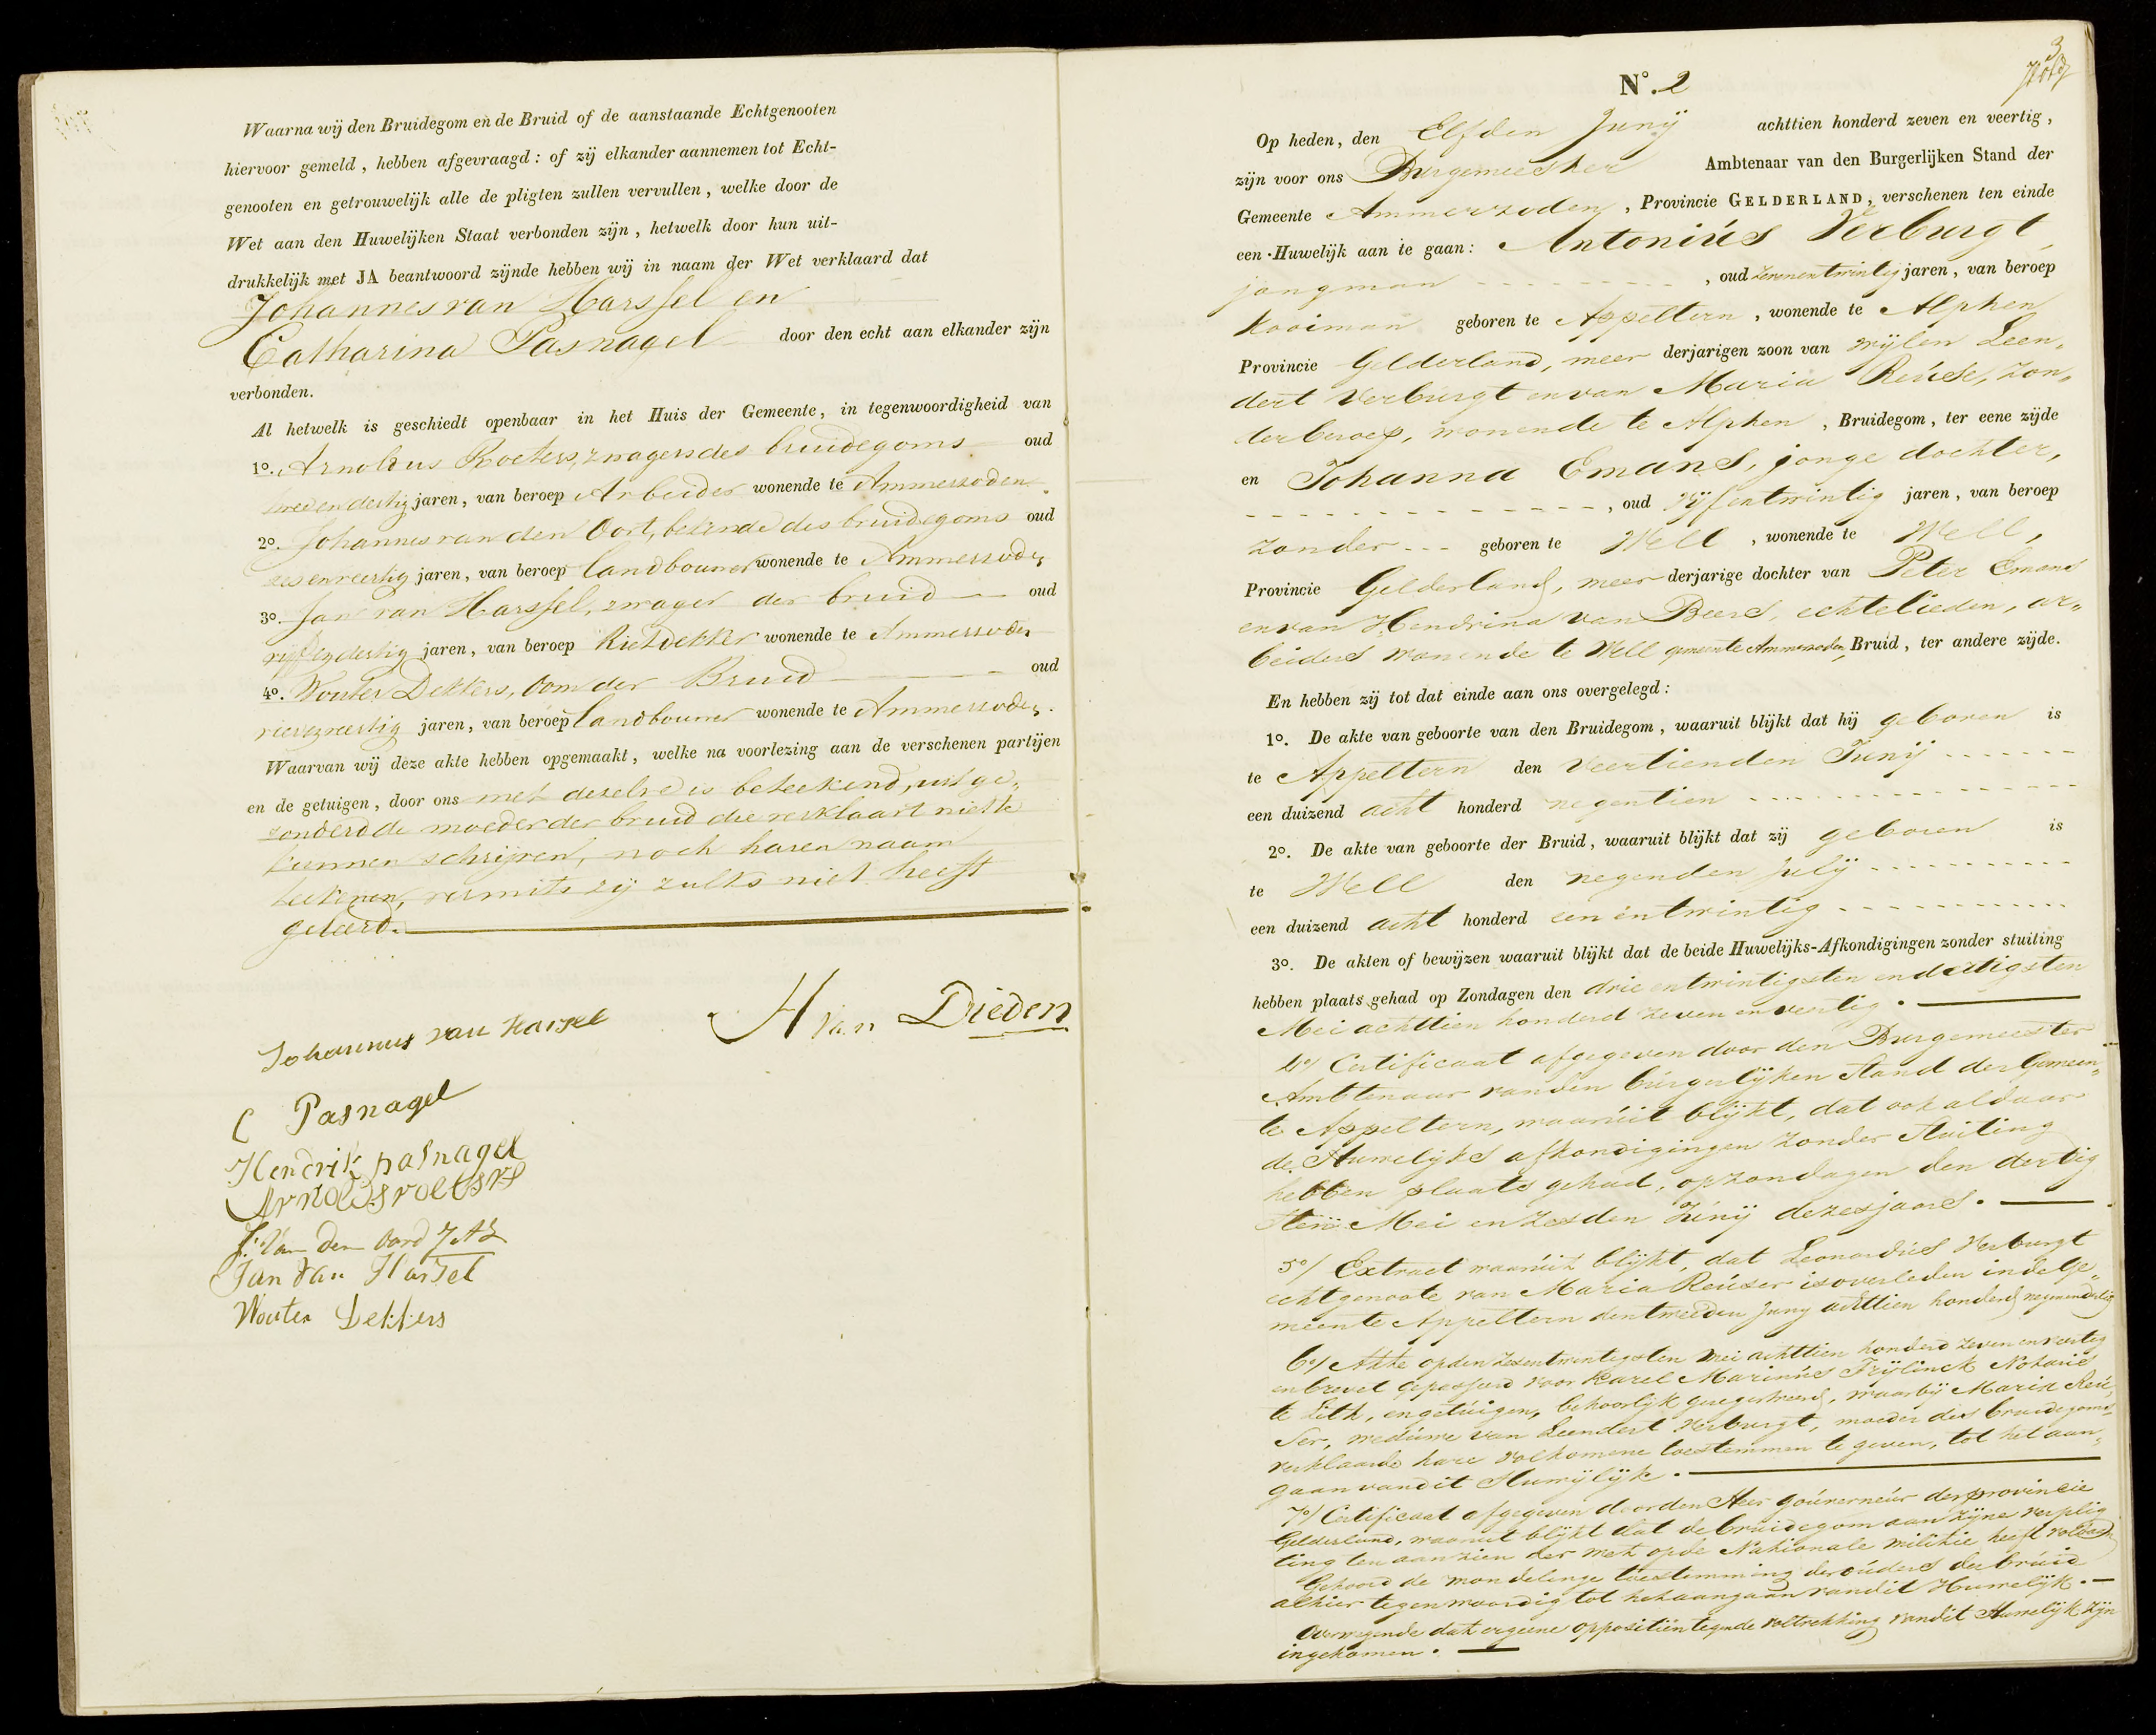 Waarna wij den Bruidegom en de Bruid of de aanstaande Echtgenooten
hiervoor gemeld, hebben afgevraagd: of zij elkander aannemen tot Echt-
genooten en getrouwelijk alle de pligten zullen vervullen, welke door de
Wet aan den Huwelijken Staat verbonden zijn, hetwelk door hun uit-
drukkelijk met JA beantwoord zijnde hebben wij in naam der Wet verklaard dat
Johannes van Harssel en
Catharina Pasnagel door den echt aan elkander zijn
verbonden.
Al hetwelk is geschiedt openbaar in het Huis der Gemeente, in tegenwoordigheid van
1o. Arnoldus Roeters, zwagers des bruidegoms oud
twee en dertig jaren, van beroep Arbeider wonende te Ammersoden.
2o. Johannes van den Oort, bekende des bruidegoms oud
zes en veertig jaren, van beroep landbouwer wonende te Ammersoden
3o. Jan van Harssel, zwager der bruid oud
vijf en dertig jaren, van beroep Rietdekker wonende te Ammersoden
4o. Wouter Dekkers, Oom der Bruid oud
vier en veertig jaren, van beroep landbouwer wonende te Ammersoden.
Waarvan wij deze akte hebben opgemaakt, welke na voorlezing aan de verschenen partijen
en de getuigen, door ons met dezelve is beteekend, uitge„
zonderd de moeder der bruid die verklaart niet te
kunnen schrijven, noch haren naam
teekenen, vermits zij zulks niet heeft
geleerd.
Johannus van Harsel H van Dieden
C Pasnagel
Hendrik pasnagel
Arnoldus roeters
J. Van den Oord
Jan Van Harsel
Wouter Dekkers
3
No. 2
Op heden, den Elfden Junij achttien honderd zeven en veertig,
zijn voor ons Burgemeester Ambtenaar van den Burgerlijken Stand der
Gemeente Ammerzoden, Provincie GELDERLAND, verschenen ten einde
een Huwelijk aan te gaan: Antoniús Verburgt
jongman, oud zevenentwintig jaren, van beroep
kooiman geboren te Appeltern, wonende te Alphen
Provincie Gelderland, meer derjarigen zoon van wijlen Leen„
dert Verbúrgt en van Maria Reúse, zon„
der beroep, wonende te Alphen, Bruidegom, ter eene zijde
en Johanna Emans, jonge dochter,
, oud vijfentwintig jaren, van beroep
zonder geboren te Well, wonende te Well,
Provincie Gelderland, meer derjarige dochter van Peter Emans
en van Hendrina van Beers, echtelieden, ar„
beiders wonende te Well gemeente Ammerzoden, Bruid, ter andere zijde.
En hebben zij tot dat einde aan ons overgelegd:
1o. De akte van geboorte van den Bruidegom, waaruit blijkt dat hij geboren is
te Appeltern den Veertienden Junij
een duizend acht honderd negentien
2o. De akte van geboorte der Bruid, waaruit blijkt dat zij geboren is
te Well den negenden Julij
een duizend acht honderd een entwintig
3o. De akten of bewijzen waaruit blijkt dat de beide Huwelijks-Afkondigingen zonder stuiting
hebben plaats gehad op Zondagen den drie entwintigsten en dertigsten
Mei achttien honderd zeven en veertig.
4o/ Certificaat afgegeven door den Burgemeester
Ambtenaar van den búrgerlijken Stand der Gemeen„
te Appeltern, waarúit blijkt, dat ook aldaar
de Huwelijks afkondigingen zonder Stuiting
hebben plaats gehad, op zondagen den dertig
sten Mei en zesden Júnij dezes jaars.
5o/ Extract waarúit blijkt, dat Leonardus Verburgt
echtgenoote van Maria Reúser is overleden in de Ge„
meente Appeltern den tweeden Juny achttien honderd negenendertig
6o/ Akte op den zesentwintigsten Mei achttien honderd zeven en veertig
en brevet gepasseerd voor Karel Marinús Frijlinck Notaris
te Lith, en getúigen, behoorlijk geregistreerd, waarbij Maria Reú„
ser, weduwe van Leendert Verburgt, moeder des bruidegoms
verklaarde hare volkomene toestemmen te geven, tot het aan„
gaan van dit Huwijlijk.
7o/ Certificaat afgegeven door den Heer goúverneúr der provincie
Gelderland, waaruit blijkt dat de bruidegom aan zijne verplig
ting ten aanzien der wet op de Nationale militie heeft voldaan
Gehoord de mondelinge toestemming der oúders der brúid
alhier tegenwoordig tot het aangaan van dit Huwelijk.
Overwegende dat er geene oppositien tegen de voltrekking van dit Huwelijk zijn
ingekomen.